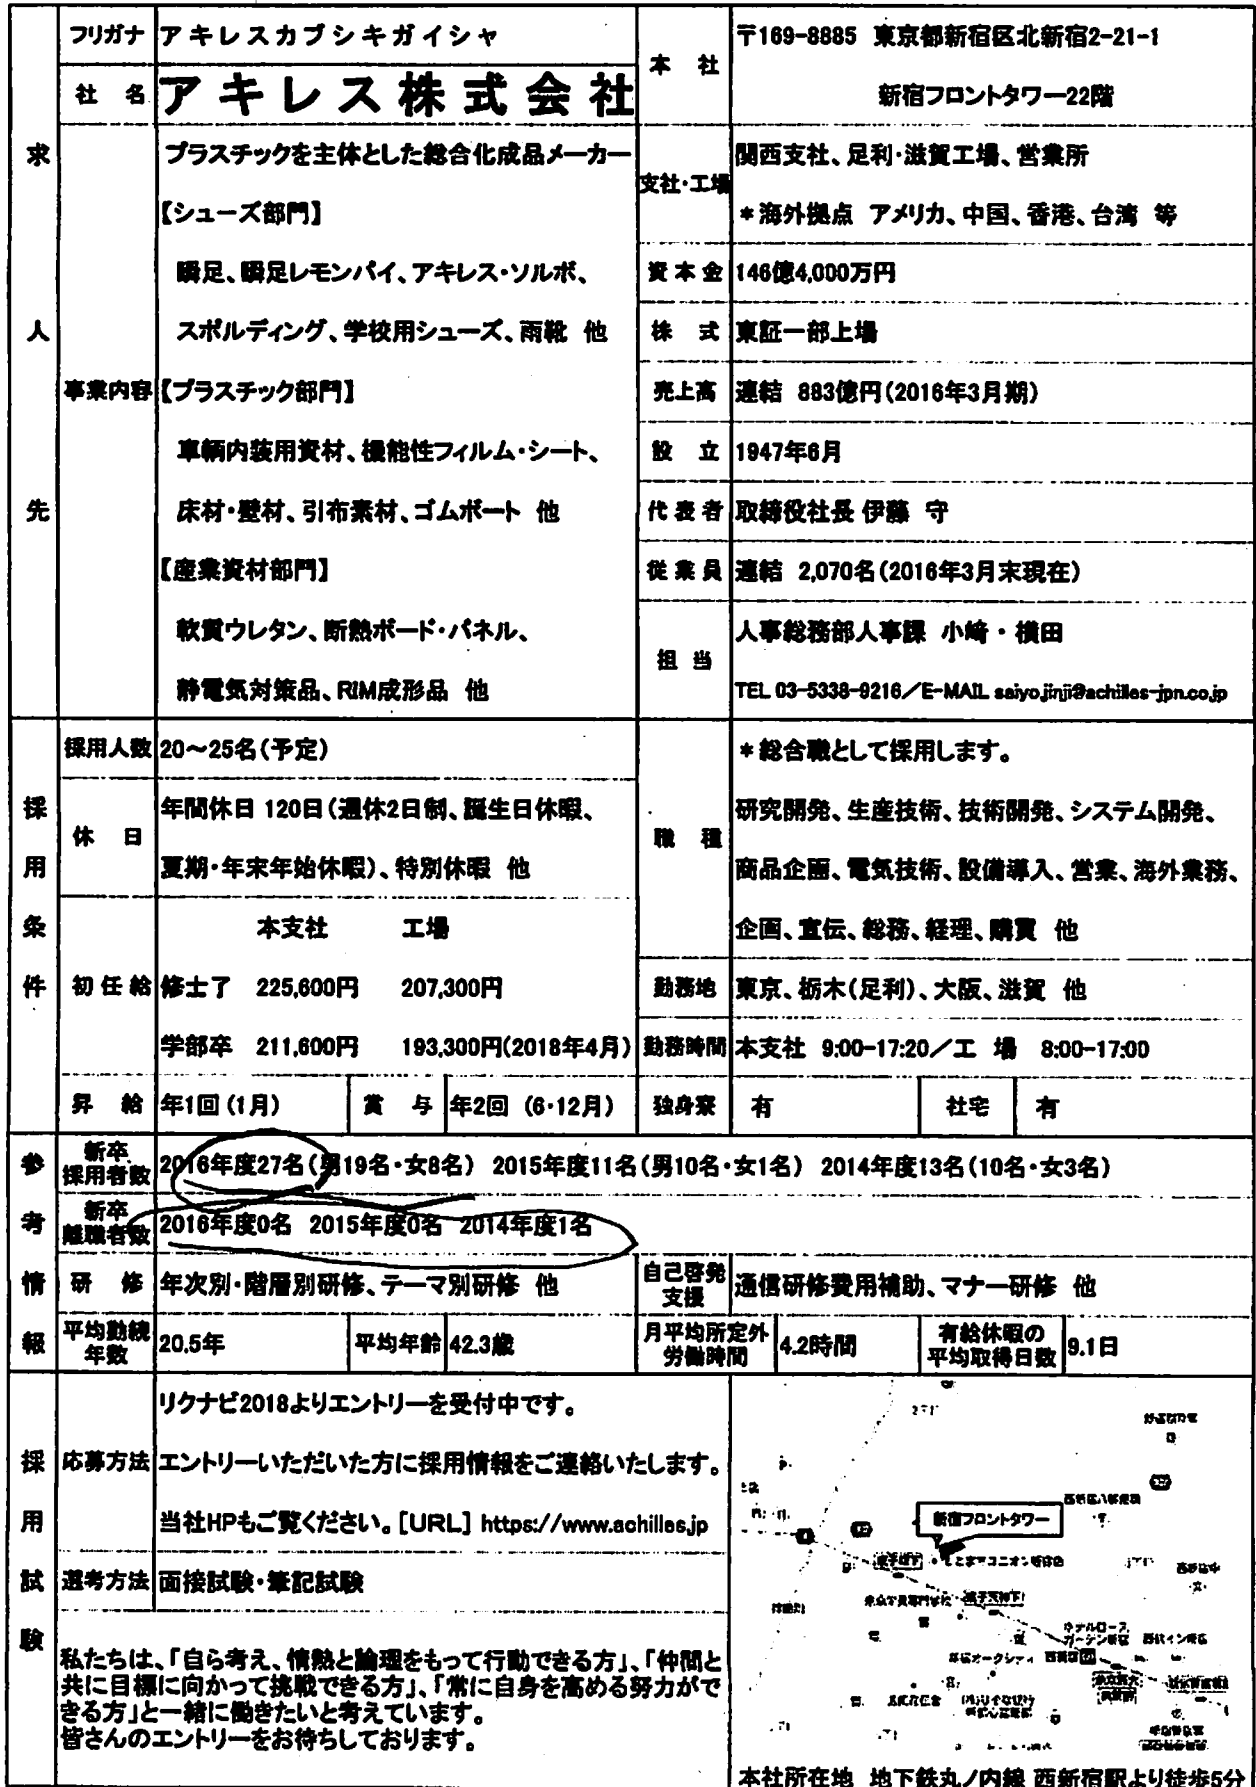 フリガナ アキレスカブシキガイシャ
社名 アキレス株式会社
本社 〒169-8885 東京都新宿区北新宿2-21-1
新宿フロントタワー22階
求人先
事業内容
プラスチックを主体とした総合化成品メーカー
【シューズ部門】
瞬足、瞬足レモンパイ、アキレス・ソルボ、
スポルディング、学校用シューズ、雨靴 他
【プラスチック部門】
車輌内装用資材、機能性フィルム・シート、
床材・壁材、引布素材、ゴムボート 他
【産業資材部門】
軟質ウレタン、断熱ボード・パネル、
静電気対策品、RIM成形品 他
支社・工場 関西支社、足利・滋賀工場、営業所
＊海外拠点 アメリカ、中国、香港、台湾 等
資本金 146億4,000万円
株式 東証一部上場
売上高 連結 883億円(2016年3月期)
設立 1947年6月
代表者 取締役社長 伊藤 守
従業員 連結 2,070名(2016年3月末現在)
担当 人事総務部人事課 小崎・横田
TEL 03-5338-9216／E-MAIL saiyo.jinji@achilles-jpn.co.jp
採用条件
採用人数 20～25名(予定)
休日 年間休日 120日(週休2日制、誕生日休暇、
夏期・年末年始休暇)、特別休暇 他
初任給
本支社 工場
修士了 225,600円 207,300円
学部卒 211,600円 193,300円(2018年4月)
職種 ＊総合職として採用します。
研究開発、生産技術、技術開発、システム開発、
商品企画、電気技術、設備導入、営業、海外業務、
企画、宣伝、総務、経理、購買 他
勤務地 東京、栃木(足利)、大阪、滋賀 他
勤務時間 本支社 9:00-17:20／工場 8:00-17:00
昇給 年1回(1月) 賞与 年2回(6・12月) 独身寮 有 社宅 有
参考情報
新卒採用者数 2016年度27名(男19名・女8名) 2015年度11名(男10名・女1名) 2014年度13名(10名・女3名)
新卒離職者数 2016年度0名 2015年度0名 2014年度1名
研修 年次別・階層別研修、テーマ別研修 他 自己啓発支援 通信研修費用補助、マナー研修 他
平均勤続年数 20.5年 平均年齢 42.3歳 月平均所定外労働時間 4.2時間 有給休暇の平均取得日数 9.1日
採用試験
応募方法
リクナビ2018よりエントリーを受付中です。
エントリーいただいた方に採用情報をご連絡いたします。
当社HPもご覧ください。[URL] https://www.achilles.jp
選考方法 面接試験・筆記試験
私たちは、「自ら考え、情熱と論理をもって行動できる方」、「仲間と
共に目標に向かって挑戦できる方」、「常に自身を高める努力がで
きる方」と一緒に働きたいと考えています。
皆さんのエントリーをお待ちしております。
新宿フロントタワー
本社所在地 地下鉄丸ノ内線 西新宿駅より徒歩5分